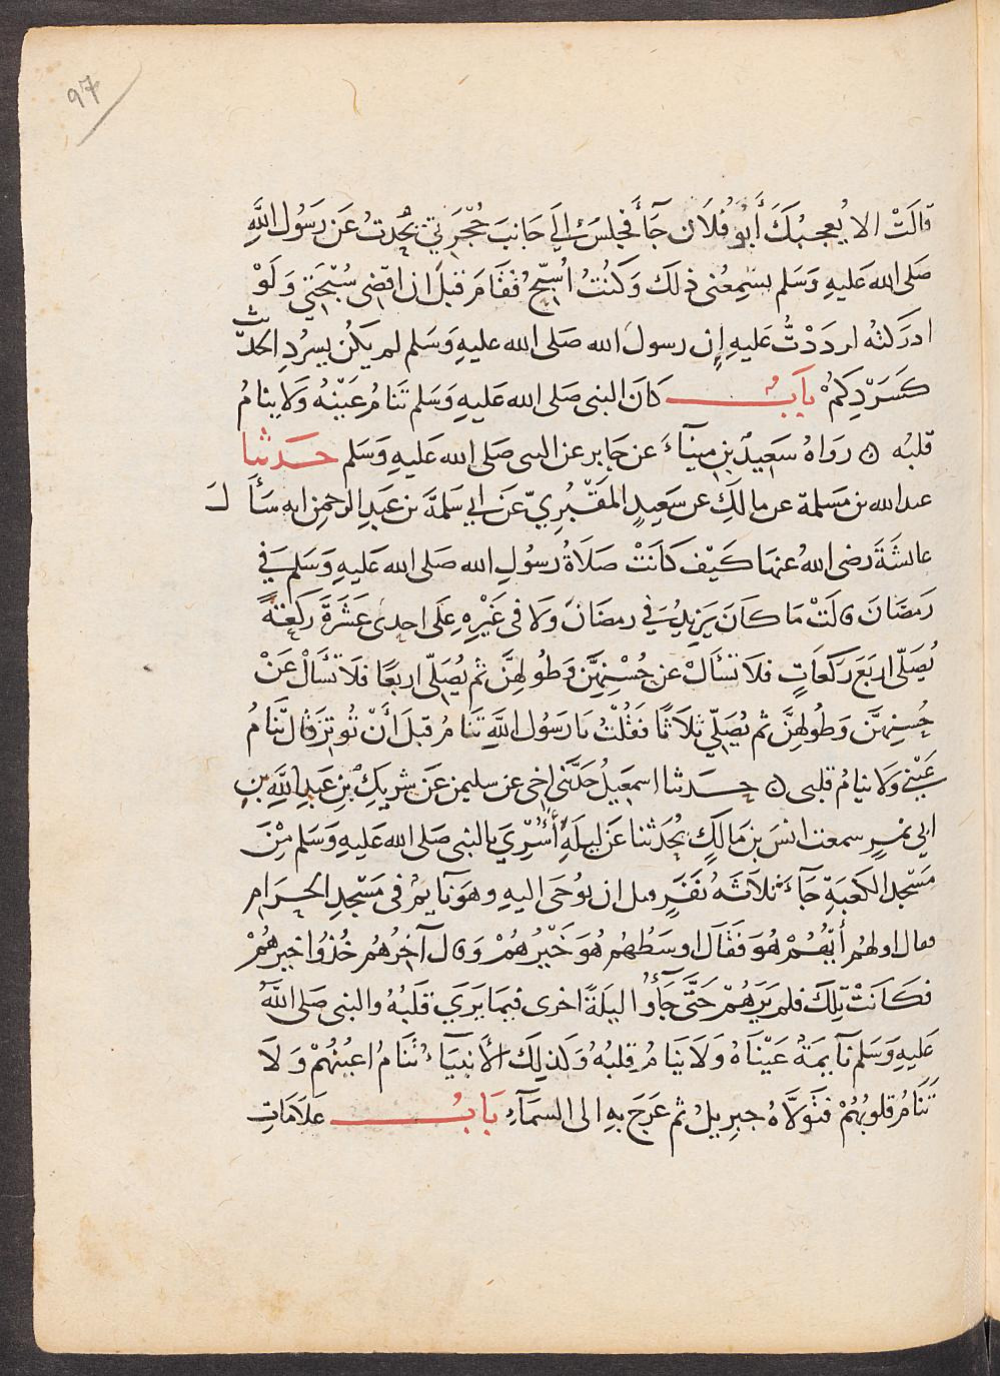 97
قَالَتْ الا يُعجبُكَ أَبُو فُلَان جَآءَ فجلسَ الَى جَانبِ حُجْرَتي يُحَدِثُ عَن رَسُول اللَّهِ
صَلى الله عَليهِ وَسَلم يسَمِعُنى ذلكَ وَكنتُ اُسَبّحُ فَقَامَ قبلَ ان اقضى سُبْحَتِي وَلَوْ
ادرَكتُه لرَدَدْتُّ عَليهِ إن رسولَ الله صَلى الله عليهِ وَسَلم لم يَكُن يسرُدِ الحَدِيث
كَسَرْدِكُمْ بَابُ كَانَ النبى صَلى الله عَليهِ وَسَلم تَنَامُ عَيْنُهُ وَلا ينامُ
قلبُه ۞ رواهُ سَعِيدُ بن مِينَآءَ عن جَابر عن النبى صَلى الله عَليهِ وَسَلم حَدثنا
عبد الله بن مَسلمة عن مالكٍ عن سَعِيدٍ المَقْبُرِيّ عَن ابي سَلمَةَ بن عَبدِ الرحمن انه سَأَلَ
عايشَةَ رضى اللهُ عنهَا كَيْف كَانَتْ صَلَاةُ رسُولِ الله صَلى الله عَليهِ وَسَلم في
رَمضَانَ قالَتْ مَا كانَ يَزيدُ في رمضَانَ وَلا فى غَيْرِهِ عَلى احدى عَشَرَةَ رَكعَةً
يُصَلّى اربَعَ رَكعَاتٍ فلَا تسْأَلْ عن حُسْنِهِنَّ وَطُولِهِنَّ ثم يُصَلّى اربعًا فلَا تسْأَلْ عَنْ
حُسنِهنَّ وَطُولِهنَّ ثم يُصَلّي ثلَاثًا فقُلْتُ يا رَسُولَ اللَّهِ تَنَامُ قبلَ أَنْ تُوتِرَ قال تَنَامُ
عَيْني وَلَا ينامُ قلبى ۞ حَدثنا اسمعِيلُ حَدَّثني اخى عن سليمن عَن شَرِيكِ بْنِ عَبدِ اللَّهِ بنِ
ابي نمِرٍ سمعت انسَ بن مَالكٍ يُحَدثنا عَن ليلَةِ أُسْرِيَ بالنبى صَلى الله عَليهِ وَسَلم مِنْ
مَسْجدِ الكَعبَةِ جَآءَ ثلَاثَةُ نَفَرٍ قبل ان يُوحَى اليهِ وهوَ نآيمٌ فى مَسْجدِ الحَرَام
فقال اولهُم أَيُّهُمْ هُوَ فَقَالَ اوسَطُهُم هُوَ خَيْرُهُمْ وَقال آخِرُهُم خُذُوا خيرهُمْ
فكَانَتْ تِلكَ فلم يَرَهُمْ حَتَّى جَآءُوا ليلَةً اخرى فيمَا يَرَي قَلبُهُ والنبى صَلى اللهُ
عَليهِ وَسَلم نآيِمَةٌ عَيْنَاهُ وَلَا يَنَامُ قلبُهُ وَكذلِكَ الأَنبيَآءُ تَنَامُ اعيُنُهُمْ وَلَا
تَنَامُ قلوبُهُمْ فتَوَلَّاهُ جبرِيلُ ثم عَرَجَ بهِ الى السمَآءِ بَابُ عَلَامَاتِ